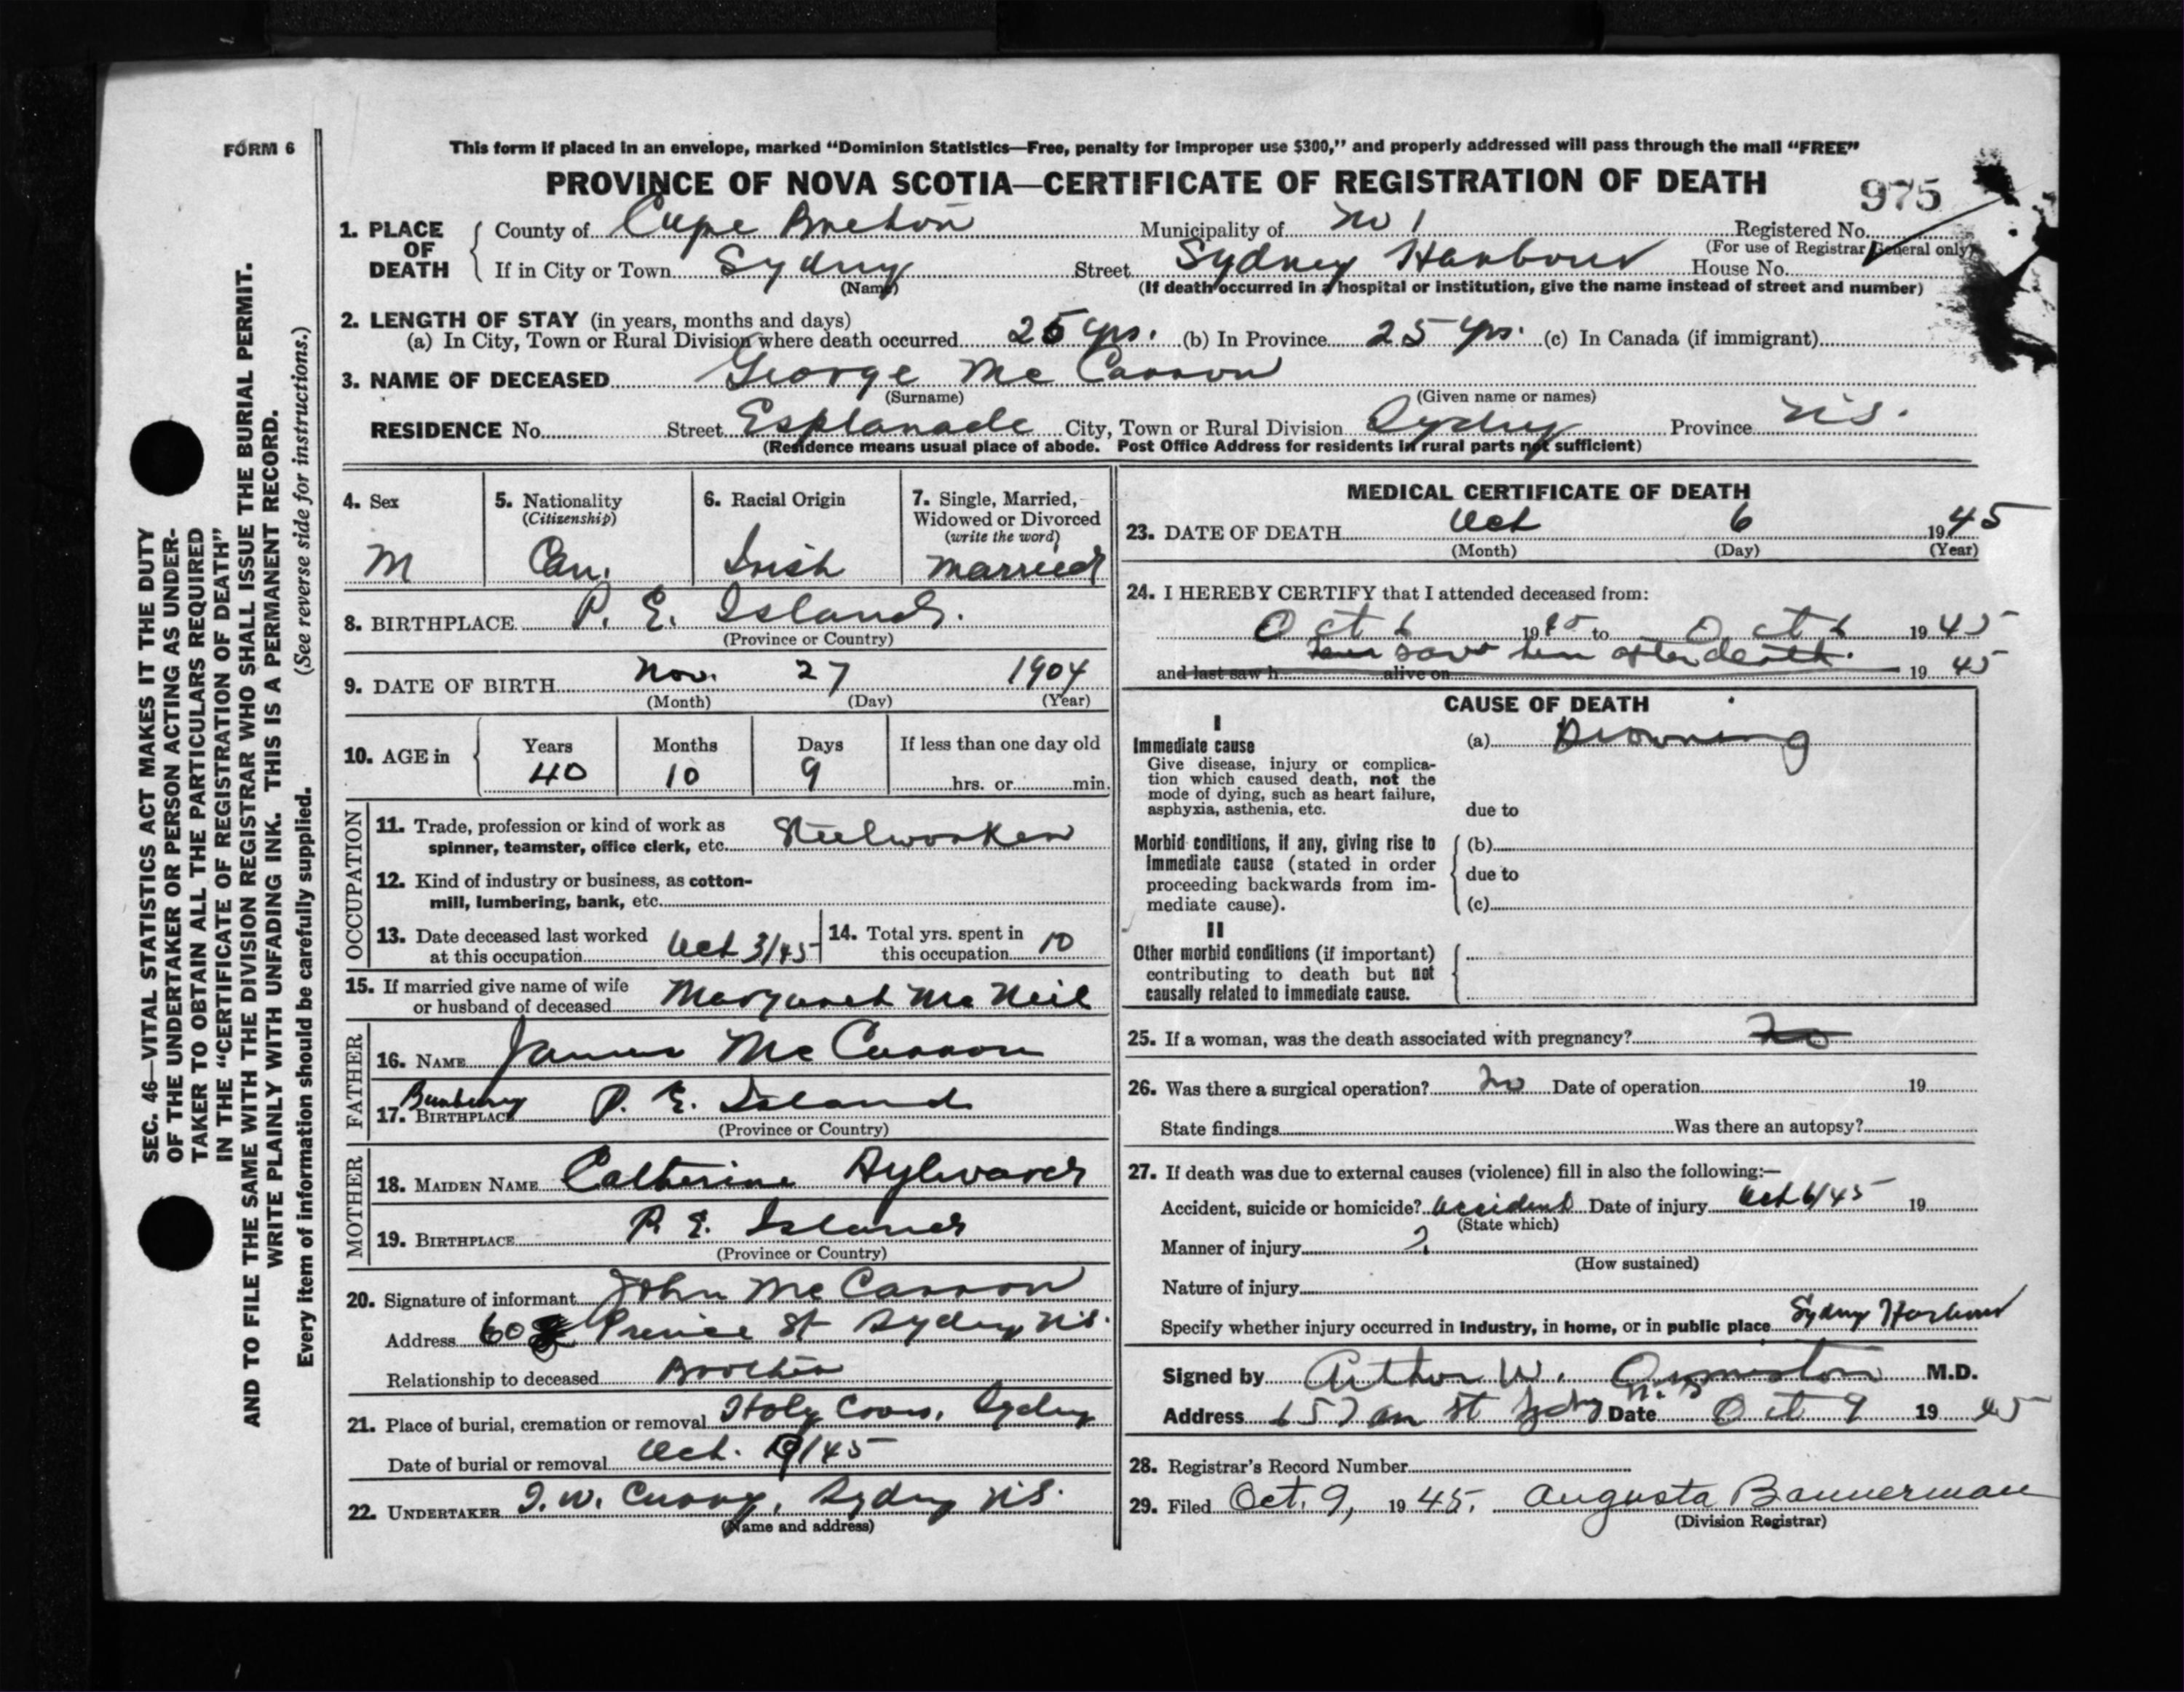 FORM 6
This form if placed in an envelope, marked "Dominion Statistics—Free, penalty for improper use $300," and properly addressed will pass through the mail "FREE"
PROVINCE OF NOVA SCOTIA—CERTIFICATE OF REGISTRATION OF DEATH
975
1. PLACE OF DEATH County of Cape Breton Municipality of No 1 Registered No.
(For use of Registrar General only)
If in City or Town Sydney Street Sydney Harbour House No.
(Name) (If death occurred in a hospital or institution, give the name instead of street and number)
2. LENGTH OF STAY (in years, months and days)
(a) In City, Town or Rural Division where death occurred 25 yrs. (b) In Province 25 yrs. (c) In Canada (if immigrant)
3. NAME OF DECEASED George Mc Carron
(Surname) (Given name or names)
RESIDENCE No. Street Esplanade City, Town or Rural Division Sydney Province N.S.
(Residence means usual place of abode. Post Office Address for residents in rural parts not sufficient)
4. Sex
M
5. Nationality
(Citizenship)
Can.
6. Racial Origin
Irish
7. Single, Married,
Widowed or Divorced
(write the word)
married
8. BIRTHPLACE P. E. Island.
(Province or Country)
9. DATE OF BIRTH Nov. 27 1904
(Month) (Day) (Year)
10. AGE in Years Months Days If less than one day old
40 10 9 hrs. or min.
OCCUPATION
11. Trade, profession or kind of work as
spinner, teamster, office clerk, etc. Steelworker
12. Kind of industry or business, as cotton-
mill, lumbering, bank, etc.
13. Date deceased last worked
at this occupation Oct 3/45
14. Total yrs. spent in
this occupation 10
15. If married give name of wife
or husband of deceased Margaret Mc Neil
FATHER
16. NAME James Mc Carron
17. BIRTHPLACE Bunbury P. E. Island
(Province or Country)
MOTHER
18. MAIDEN NAME Catherine Aylward
19. BIRTHPLACE P. E. Island
(Province or Country)
20. Signature of informant John Mc Carron
Address 60 Prince St Sydney N.S.
Relationship to deceased Brother
21. Place of burial, cremation or removal Holy Cross, Sydney
Date of burial or removal Oct. 9/45
22. UNDERTAKER Curry, Sydney N.S.
(Name and address)
MEDICAL CERTIFICATE OF DEATH
23. DATE OF DEATH Oct 6 1945
(Month) (Day) (Year)
24. I HEREBY CERTIFY that I attended deceased from:
Oct 6 1945 to Oct 6 1945
saw him after death.
and last saw h alive on 1945
CAUSE OF DEATH
I
Immediate cause
Give disease, injury or complica-
tion which caused death, not the
mode of dying, such as heart failure,
asphyxia, asthenia, etc.
(a) Drowning
due to
Morbid conditions, if any, giving rise to
immediate cause (stated in order
proceeding backwards from im-
mediate cause).
(b)
due to
(c)
II
Other morbid conditions (if important)
contributing to death but not
causally related to immediate cause.
25. If a woman, was the death associated with pregnancy? no
26. Was there a surgical operation? no Date of operation 19
State findings Was there an autopsy?
27. If death was due to external causes (violence) fill in also the following:—
Accident, suicide or homicide? Accident Date of injury Oct 6/45 19
(State which)
Manner of injury ?
(How sustained)
Nature of injury
Specify whether injury occurred in industry, in home, or in public place Sydney Harbour
Signed by Arthur W. Ormiston M.D.
Address St Sydney N.S. Date Oct 9 1945
28. Registrar's Record Number
29. Filed Oct. 9, 1945. Augusta Bannerman
(Division Registrar)
SEC. 46—VITAL STATISTICS ACT MAKES IT THE DUTY
OF THE UNDERTAKER OR PERSON ACTING AS UNDER-
TAKER TO OBTAIN ALL THE PARTICULARS REQUIRED
IN THE "CERTIFICATE OF REGISTRATION OF DEATH"
AND TO FILE THE SAME WITH THE DIVISION REGISTRAR WHO SHALL ISSUE THE BURIAL PERMIT.
WRITE PLAINLY WITH UNFADING INK. THIS IS A PERMANENT RECORD.
Every item of information should be carefully supplied. (See reverse side for instructions.)